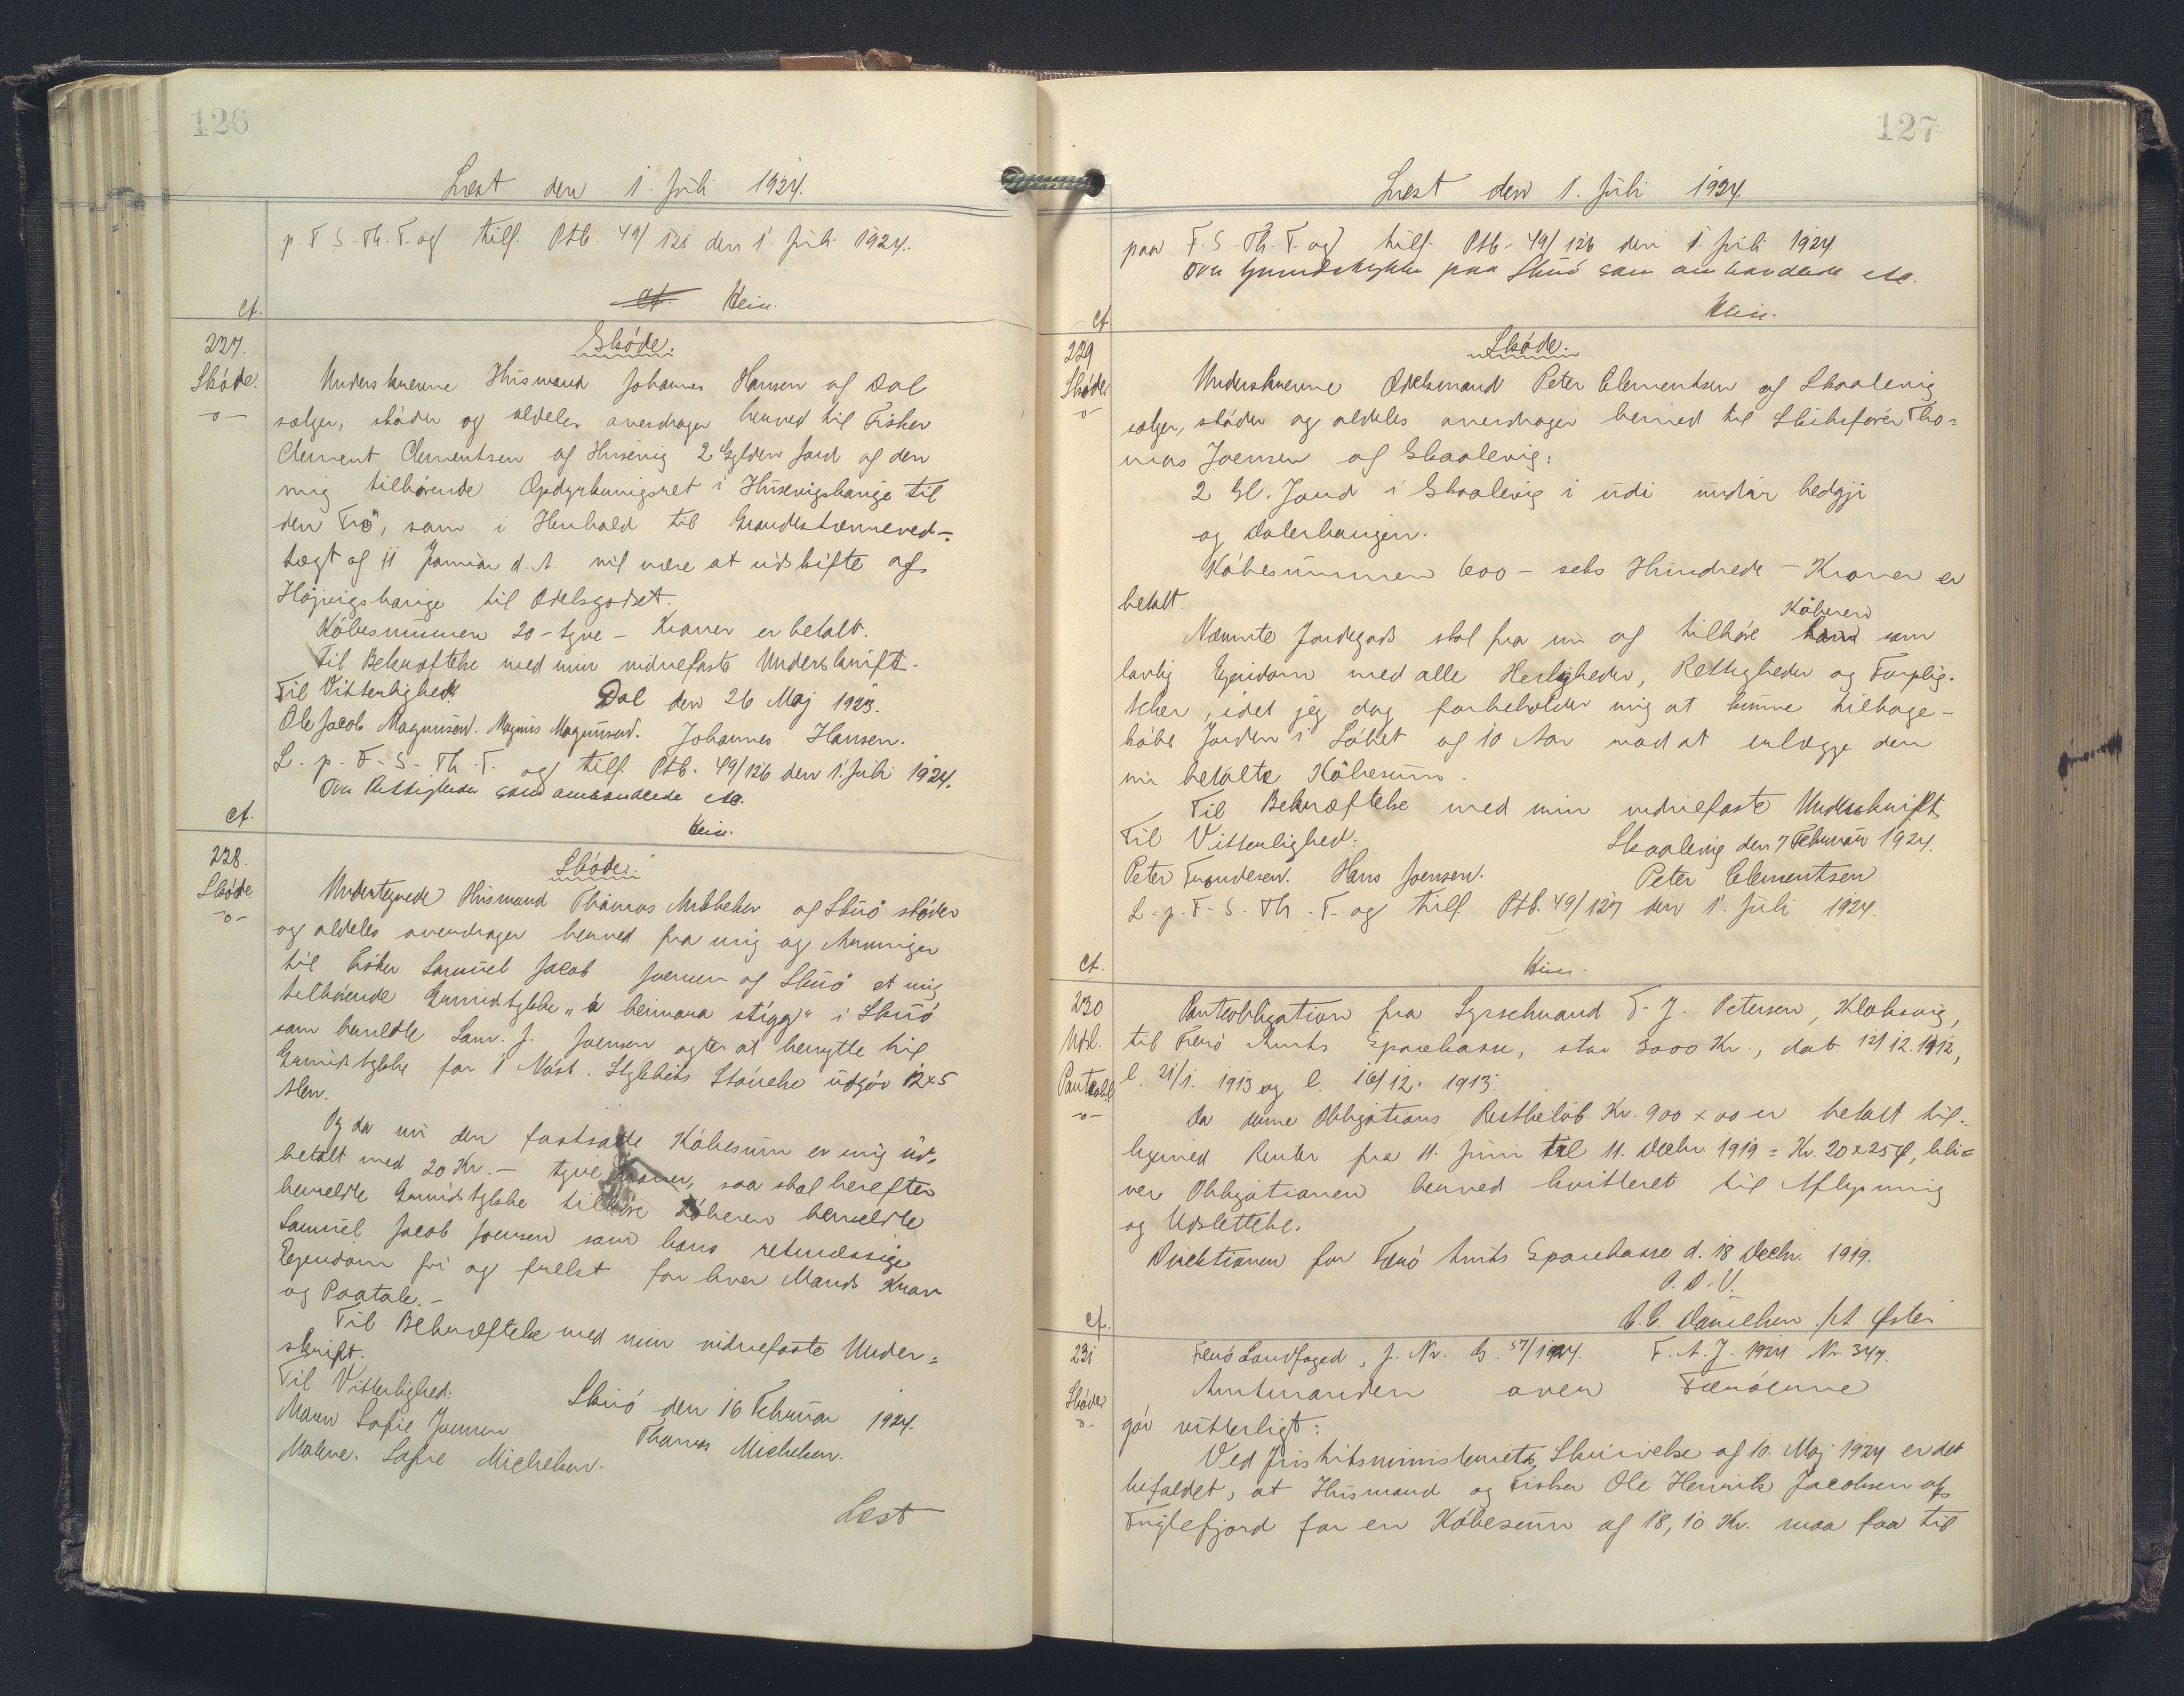 126
Læst den 1. Juli 1924.
p. F. S. Th. F. og tilf. Ptb. 49/126 den 1. Juli 1924.
ct. Hein.
ct.
227.
Skóde.
-o-
Skóde.
Underskrevne Húsmand Johannes Hansen af Dal
sælger, skóder og aldeles overdrager herved til Fisker
Clement Clementsen af Húsevig 2 Gylden Jord og den
mig tilhórende Opdyrkningsret i Húsevigshauge til
den Trö, som i Henhold til Grandestævneved-
tægt af 11 Januar d. A. vil være at udskifte af
Højvigshauge til Odelsgodset.
Kóbesummen 20 - tyve - Kroner er betalt.
Til Bekræftelse med min vidnefaste Underskrift.
Til Vitterlighed: Dal den 26 Maj 1923.
Ole Jacob Magnusen. Magnus Magnusen. Johannes Hansen.
L. p. F. S. Th. F. og tilf. Ptb. 49/126 den 1. Juli 1924.
Ovn Rettigheder som ombandlede etc.
Hein.
ct.
228.
Skóde
-o-
Skóde.
Undertegnede Húsmand Thomas Mikkelsen af Skuó skóder
og aldeles overdrager herved fra mig og Arvinger
til Fisker Samuel Jacob Joensen af Skuó et mig
tilhórende Grundstykke „á heimara stigg" i Skuó
som bemeldte Sam. J. Joensen agter at benytte til
Grundstykke for 1 Nóst. Stykkets Stórrelse udgór 12 x 5
Alen.
Og da nu den fastsatte Kóbesum er mig ud-
betalt med 20 Kr. - tyve Kroner, saa skal herefter
bemeldte Grundstykke tilhóre Kóberen bemeldte
Samuel Jacob Joensen som hans retmæssige
Ejendom fri og frelst for hver Mands Krav
og Paatale. -
Til Bekræftelse med min vidnefaste Under=
skrift.
Til Vitterlighed: Skuó den 16 Februar 1924.
Maren Sofie Joensen Thomas Michelsen.
Malene Sofie Michelsen.
Læst
127
Læst den 1. Juli 1924.
paa F. S. Th. F. og tilf. Ptb. 49/126 den 1. Juli 1924
ovn Grundstykke paa Skuó som ombandlede etc.
Hein.
ct.
229
Skóde
-o-
Skóde.
Underskrevne Odelsmand Peter Clementsen af Skaalevig
sælger, skóder og aldeles overdrager herved til Skibsfører Tho=
mas Joensen af Skaalevig:
2 Gl. Jord i Skaalevig i údi undir hedgji
og Dalerhaugen.
Kóbesummen 600 - seks Hundrede - Kroner er
betalt.
Nævnte Jordegods skal fra nu og tilhóre ham Kóberen som
lovlig Ejendom med alle Herligheder, Rettigheder og Forplig-
telser, idet jeg dog forbeholder mig at kunne tilbage-
kóbe Jorden i Lóbet af 10 Aar mod at erlægge den
nu betalte Kóbesum.
Til Bekræftelse med min vidnefaste Underskrift.
Til Vitterlighed: Skaalevig den 7 Februar 1924.
Peter Trondesen. Hans Joensen. Peter Clementsen
L. p. F. S. Th. F. og tilf. Ptb. 49/127 den 1. Juli 1924.
Hein.
ct.
230
Udsl.
Panteobl.
-o-
Panteobligation fra Synsmand F. J. Petersen, Klaksvig,
til Færó Amts Sparekasse, stor 3000 Kr., dat 12/12. 1912,
l. 21/1. 1913 og l. 16/12. 1913.
Da denne Obligations Restbelób Kr. 900 x 00 er betalt til-
ligemed Renter fra 11. Juni til 11. Decbr. 1919 = Kr. 20 x 25 Ø, bli=
ver Obligationen herved kvitteret til Aflysning
og Udslettelse.
Direktionen for Færó Amts Sparekasse d. 18 Decbr. 1919.
P. D. V.
C. C. Danielsen /A. Øster
ct.
231
Skóde
-o-
Færó Landfoged, J. Nr. G. 57/1924. F. A. J. 1924 Nr. 347.
Amtmanden over Færóerne
gór vitterligt:
Ved Justitsministeriets Skrivelse af 10. Maj 1924 er det
bifaldet, at Húsmand og Fisker Ole Henrik Jacobsen af
Fuglefjord for en Kóbesum af 18,10 Kr. maa faa til